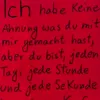 Ich habe keine
Ahnung was du mit
mir gemacht hast,
aber du bist, jeden
Tag, jede Stunde
und jede Sekunde